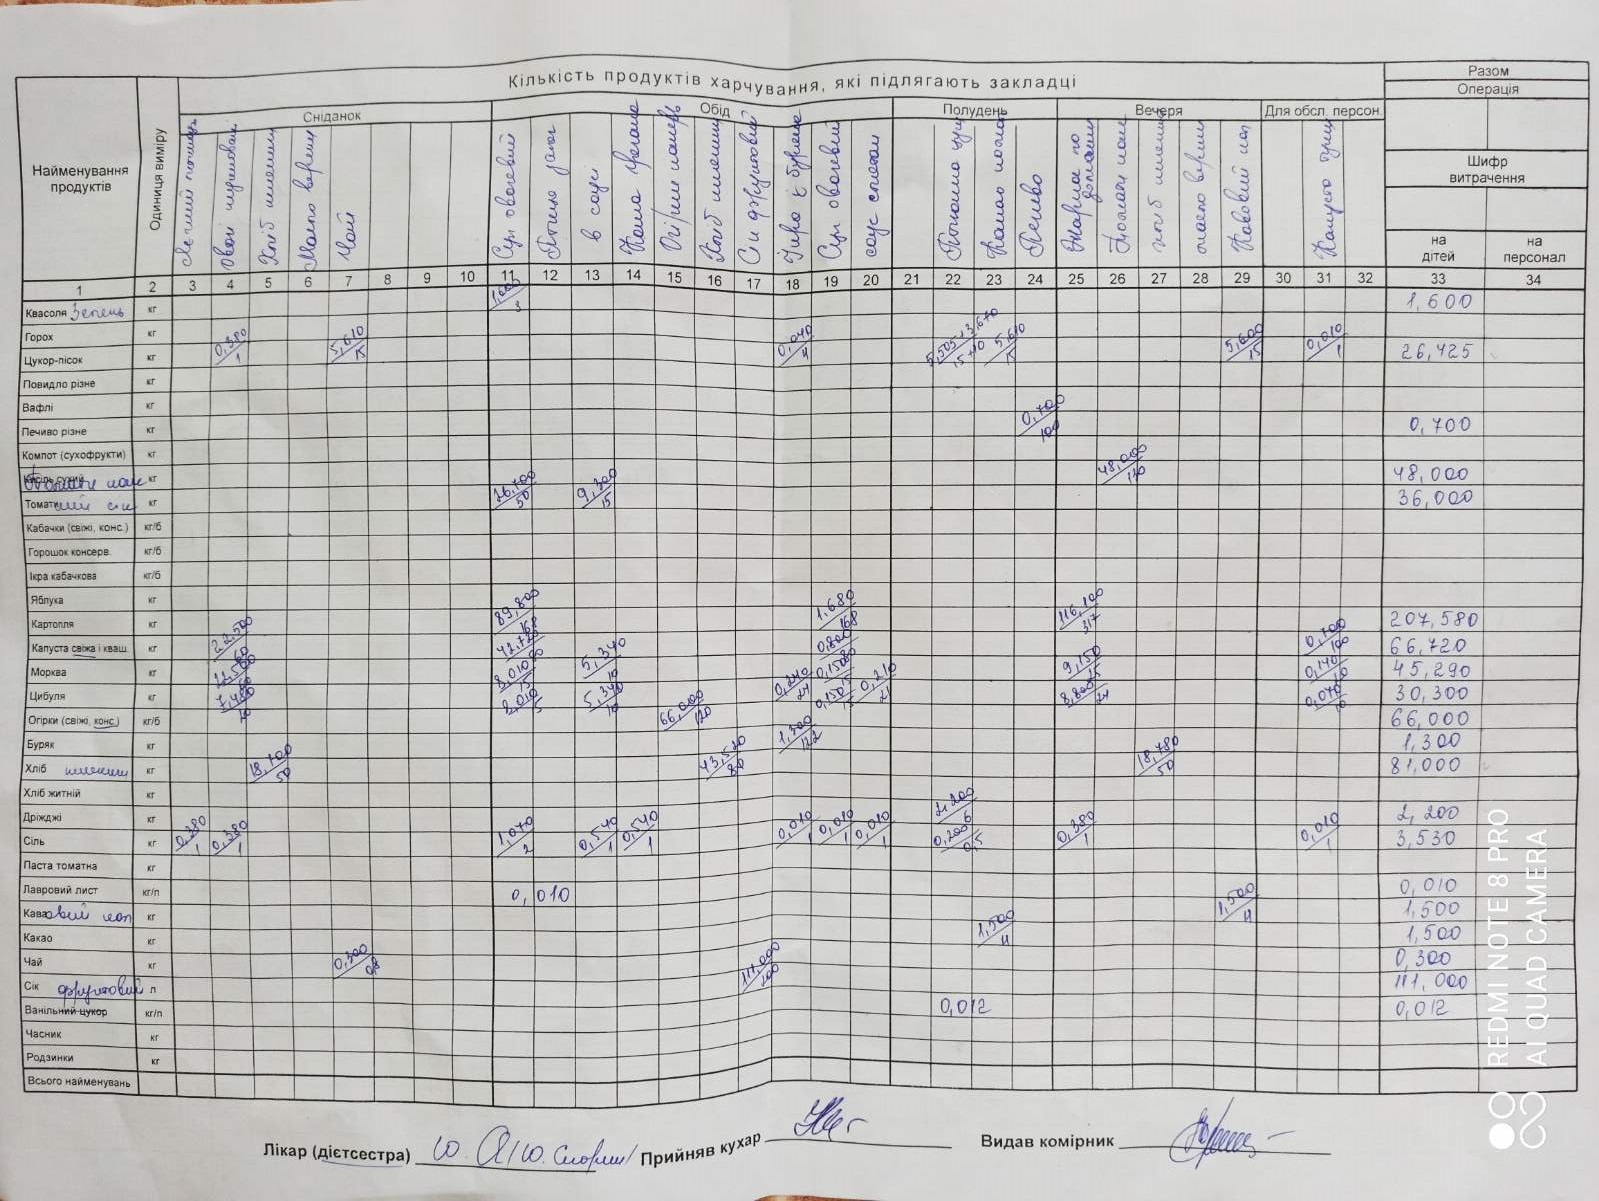 Кількість продуктів харчування, які підлягають закладці
Разом
Операція
Найменування продуктів
Одиниця виміру
Сніданок
Обід
Полудень
Вечеря
Для обсл. персон.
Шифр витрачення
на дітей
на персонал
Хліб пшеничн
Масло вершк
Чай
Суп овочевий
в соусі
Хліб пшеничн
Сік фруктовий
Суп овочевий
Какао молоч
Печиво
хліб пшеничн
масло вершк
Кавовий нап
1 2 3 4 5 6 7 8 9 10 11 12 13 14 15 16 17 18 19 20 21 22 23 24 25 26 27 28 29 30 31 32 33 34
Квасоля зелень кг 3 1,600
Горох кг
Цукор-пісок кг 0,380/1 5,610/15 0,040/4 5,505+3,670/15+10 5,610/15 5,600/15 0,010/1 26,425
Повидло різне кг
Вафлі кг
Печиво різне кг 0,700/100 0,700
Компот (сухофрукти) кг
Кисіль сухий кг 48,000/120 48,000
Томатний сік кг 26,700/50 9,300/15 36,000
Кабачки (свіжі, конс.) кг/б
Горошок консерв. кг/б
Ікра кабачкова кг/б
Яблука кг
Картопля кг 89,800/168 1,680/168 116,100/317 207,580
Капуста свіжа і кваш. кг 22,500/60 42,720 0,800 0,700/100 66,720
Морква кг 22,500 8,010/15 5,340/10 0,240/24 0,150/15 9,150 0,140 45,290
Цибуля кг 7,480 8,010 5,340/10 0,150/15 0,210/21 8,800/24 0,070/10 30,300
Огірки (свіжі, конс.) кг/б 66,000/120 66,000
Буряк кг 1,300/122 1,300
Хліб пшеничн кг 18,700/50 43,520/80 18,780/50 81,000
Хліб житній кг
Дріжджі кг 2,200/6 2,200
Сіль кг 0,380/1 0,380/1 1,070/2 0,540/1 0,540/1 0,010/1 0,010/1 0,010/1 0,200/0,5 0,380/1 0,010/1 3,530
Паста томатна кг
Лавровий лист кг/п 0,010 0,010
Кавовий нап кг 1,500/4 1,500
Какао кг 1,500/4 1,500
Чай кг 0,300/0,8 0,300
Сік фруктовий л 111,000/200 111,000
Ванільний цукор кг/п 0,012 0,012
Часник кг
Родзинки кг
Всього найменувань
Лікар (дієтсестра) Прийняв кухар Видав комірник
REDMI NOTE 8 PRO
AI QUAD CAMERA